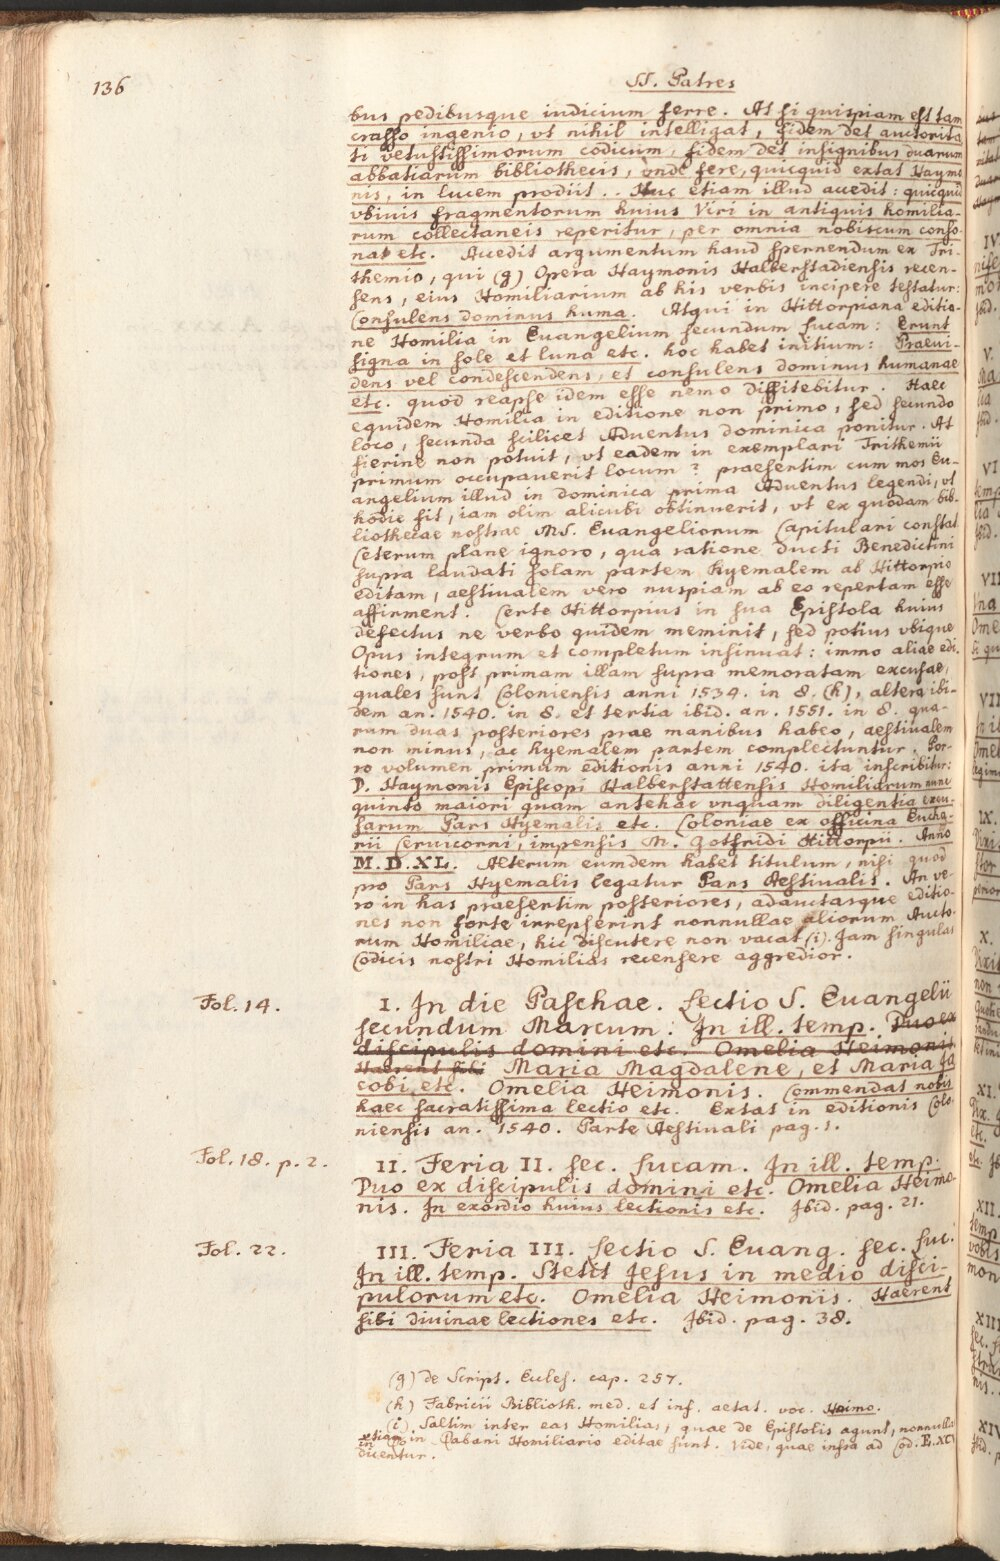 136
SS. Patres
bus pedibusque indicium ferre. At si quispiam est tam
crasso ingenio, vt nihil intelligat, fidem det auctorita
ti vetustissimorum codicum, fidem det insignibus duarum
abbatiarum bibliothecis, vnde fere, quicquid extat Haymo
nis, in lucem prodiit.. Huc etiam illud accedit: quicquid
vbiuis fragmentorum huius Viri in antiquis homilia-
rum collectaneis reperitur, per omnia nobiscum conso-
nat etc. Accedit argumentum haud spernendum ex Tri-
themio, qui (g) Opera Haymonis Halberstadiensis recen-
sens, eius Homiliarium ab his verbis incipere testatur:
Consulens dominus huma. Atqui in Hittorpiana editio-
ne Homilia in Euangelium secundum Lucam: Erunt
signa in sole et luna etc. hoc habet initium: Praeui-
dens vel condescendens, et consulens dominus humanae
etc. quod reapse idem esse nemo diffitebitur. Haec
equidem Homilia in editione non primo, sed secundo
loco, secunda scilicet Aduentus dominica ponitur. At
fierine non potuit, vt eadem in exemplari Trithemii
primum occupauerit locum? praesertim cum mos Eu-
angelium illud in dominica prima Aduentus legendi, vt
hodie fit, iam olim alicubi obtinuerit, vt ex quodam bib-
liothecae nostrae MS. Euangeliorum Capitulari constat
Ceterum plane ignoro, qua ratione ducti Benedictini
supra laudati solam partem hyemalem ab Hittorpio
editam, aestiualem vero nuspiam ab eo repertam esse
affirment. Certe Hittorpius in sua Epistola huius
defectus ne verbo quidem meminit, sed potius vbique
Opus integrum et completum insinuat: immo aliae edi-
tiones, post primam illam supra memoratam excusae,
quales sunt Coloniensis anni 1534. in 8. (h), altera ibi-
dem an. 1540. in 8. et tertia ibid. an. 1551. in 8. qua-
rum duas posteriores prae manibus habeo, aestiualem
non minus, ac hyemalem partem complectuntur. Por-
ro volumen primum editionis anni 1540. ita inscribitur:
D. Haymonis Episcopi Halberstattensis Homiliarum nunc
quinto maiori quam antehac vnquam diligentia excu-
sarum Pars Hyemalis etc. Coloniae ex officina Eucha-
rii Ceruicorni, impensis M. Gotfridi Hittorpii. Anno
M.D.XL. Alterum eumdem habet titulum, nisi quod
pro Pars Hyemalis legatur Pars Aestiualis. An ve-
ro in has praesertim posteriores, adauctasque editio-
nes non forte irrepserint nonnullae aliorum Aucto-
rum Homiliae, hic discutere non vacat (i). Jam singulas
Codicis nostri Homilias recensere aggredior.
Fol. 14. I. In die Paschae. Lectio S. Euangelii
secundum Marcum: In ill. temp. Duo ex
discipulis domini etc. Omelia Heimonis
Haerent sibi Maria Magdalene, et Maria Ja
cobi etc. Omelia Heimonis. Commendat nobis
haec sacratissima lectio etc. Extat in editionis Colo-
niensis an. 1540. Parte Aestiuali pag. 1.
Fol. 18. p. 2. II. Feria II. sec. Lucam. In ill. temp.
Duo ex discipulis domini etc. Omelia Heimo-
nis. In exordio huius lectionis etc. Ibid. pag. 21.
Fol. 22. III. Feria III. Lectio S. Euang. sec. Luc.
In ill. temp. Stetit Jesus in medio disci-
pulorum etc. Omelia Heimonis. Haerent
sibi diuinae lectiones etc. Ibid. pag. 38.
(g) de Script. Eccles. cap. 257.
(h) Fabricii Biblioth. med. et inf. aetat. voc. Haimo.
(i) Saltim inter eas Homilias, quae de Epistolis agunt, nonnullae
etiam in Rabani Homiliario editae sunt. Vide, quae infra ad Cod.
dicentur.